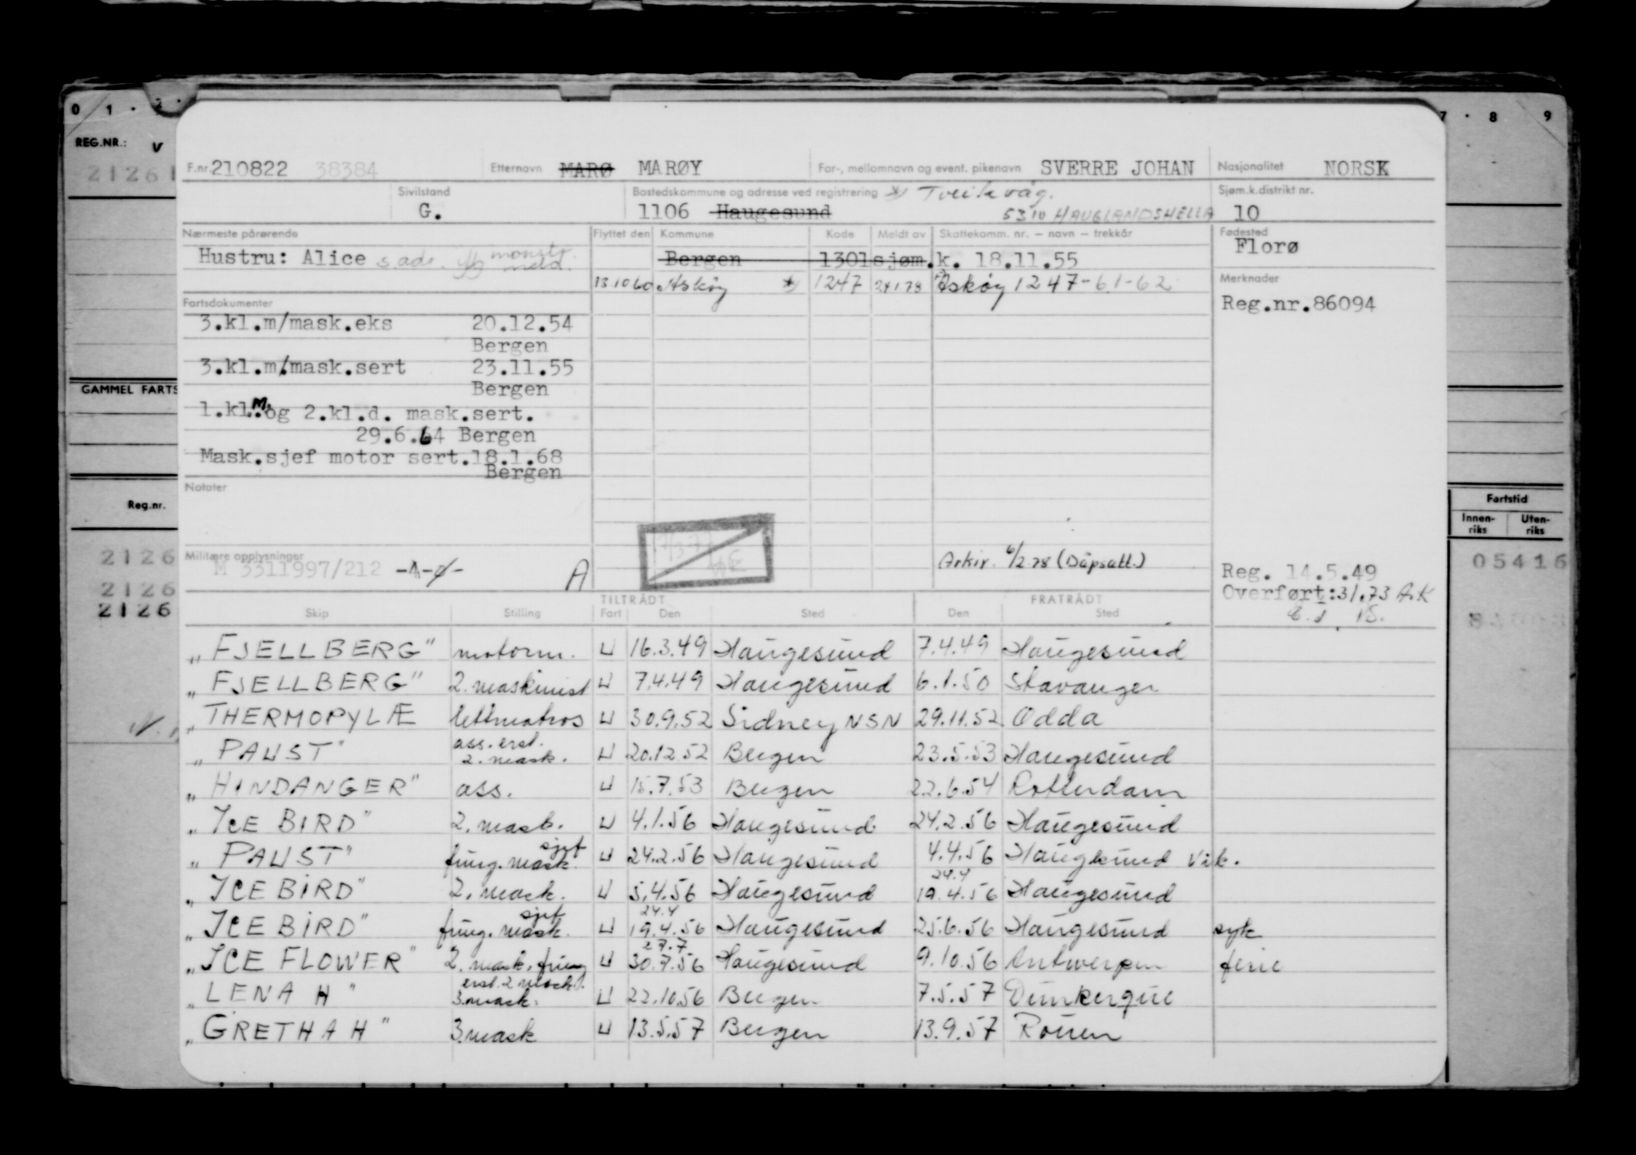 0 1 · 2 · 7 · 8 9
REG.NR.: V
2126
F.nr. 210822 38384 Etternavn MARØ MARØY For-, mellomnavn og event. pikenavn SVERRE JOHAN Nasjonalitet NORSK
Sivilstand Bostedskommune og adresse ved registrering *) Tveitevåg. Sjøm.k.distrikt nr.
G. 1106 Haugesund 5310 HAUGLANDSHELLA 10
Nærmeste pårørende Flyttet den Kommune Kode Meldt av Skattekomm. nr. – navn – trekkår Fødested
Hustru: Alice s.adr. Bergen 1301 sjøm.k. 18.11.55 Florø
13.10.60 Askøy *) 1247 Askøy 1247-61-62 Merknader
Fartsdokumenter Reg.nr.86094
3.kl.m/mask.eks 20.12.54
Bergen
3.kl.m/mask.sert 23.11.55
Bergen
GAMMEL FARTS
1.kl.M. og 2.kl.d. mask.sert.
29.6.64 Bergen
Mask.sjef motor sert.18.1.68
Bergen
Notater
Reg.nr. Fartstid
Innen-riks Uten-riks
Militære opplysninger
M 3311997/212 A Arkiv. 6/2 78 (Dåpsatt.)
2126 05416
2126
2126
Reg. 14.5.49
Overført: 31/.73 A.K
TILTRÅDT FRATRÅDT
Skip Stilling Fart Den Sted Den Sted
„FJELLBERG" motorm. U 16.3.49 Haugesund 7.4.49 Haugesund
„FJELLBERG" 2. maskinist U 7.4.49 Haugesund 6.1.50 Stavanger
„THERMOPYLÆ lettmatros U 30.9.52 Sidney NSN 29.11.52 Odda
„PAUST" ass. erst. 2. mask. U 20.12.52 Bergen 23.5.53 Haugesund
„HINDANGER" ass. U 15.7.53 Bergen 22.6.54 Rotterdam
„ICE BIRD" 2. mask. U 4.1.56 Haugesund 24.2.56 Haugesund
„PAUST" fung. mask.sjef U 24.2.56 Haugesund 4.4.56 Haugesund vik.
„ICEBIRD" 2. mask. U 5.4.56 Haugesund 24.4 19.4.56 Haugesund
„ICEBIRD" fung. mask.sjef U 24.4 19.4.56 Haugesund 25.6.56 Haugesund syk
„ICE FLOWER" 2. mask. fung U 27.7 30.7.56 Haugesund 9.10.56 Antwerpen ferie
„LENA H" erst. 2. mask. 3. mask. U 22.10.56 Bergen 7.5.57 Dunkerque
„GRETHA H" 3. mask U 13.5.57 Bergen 13.9.57 Rouen